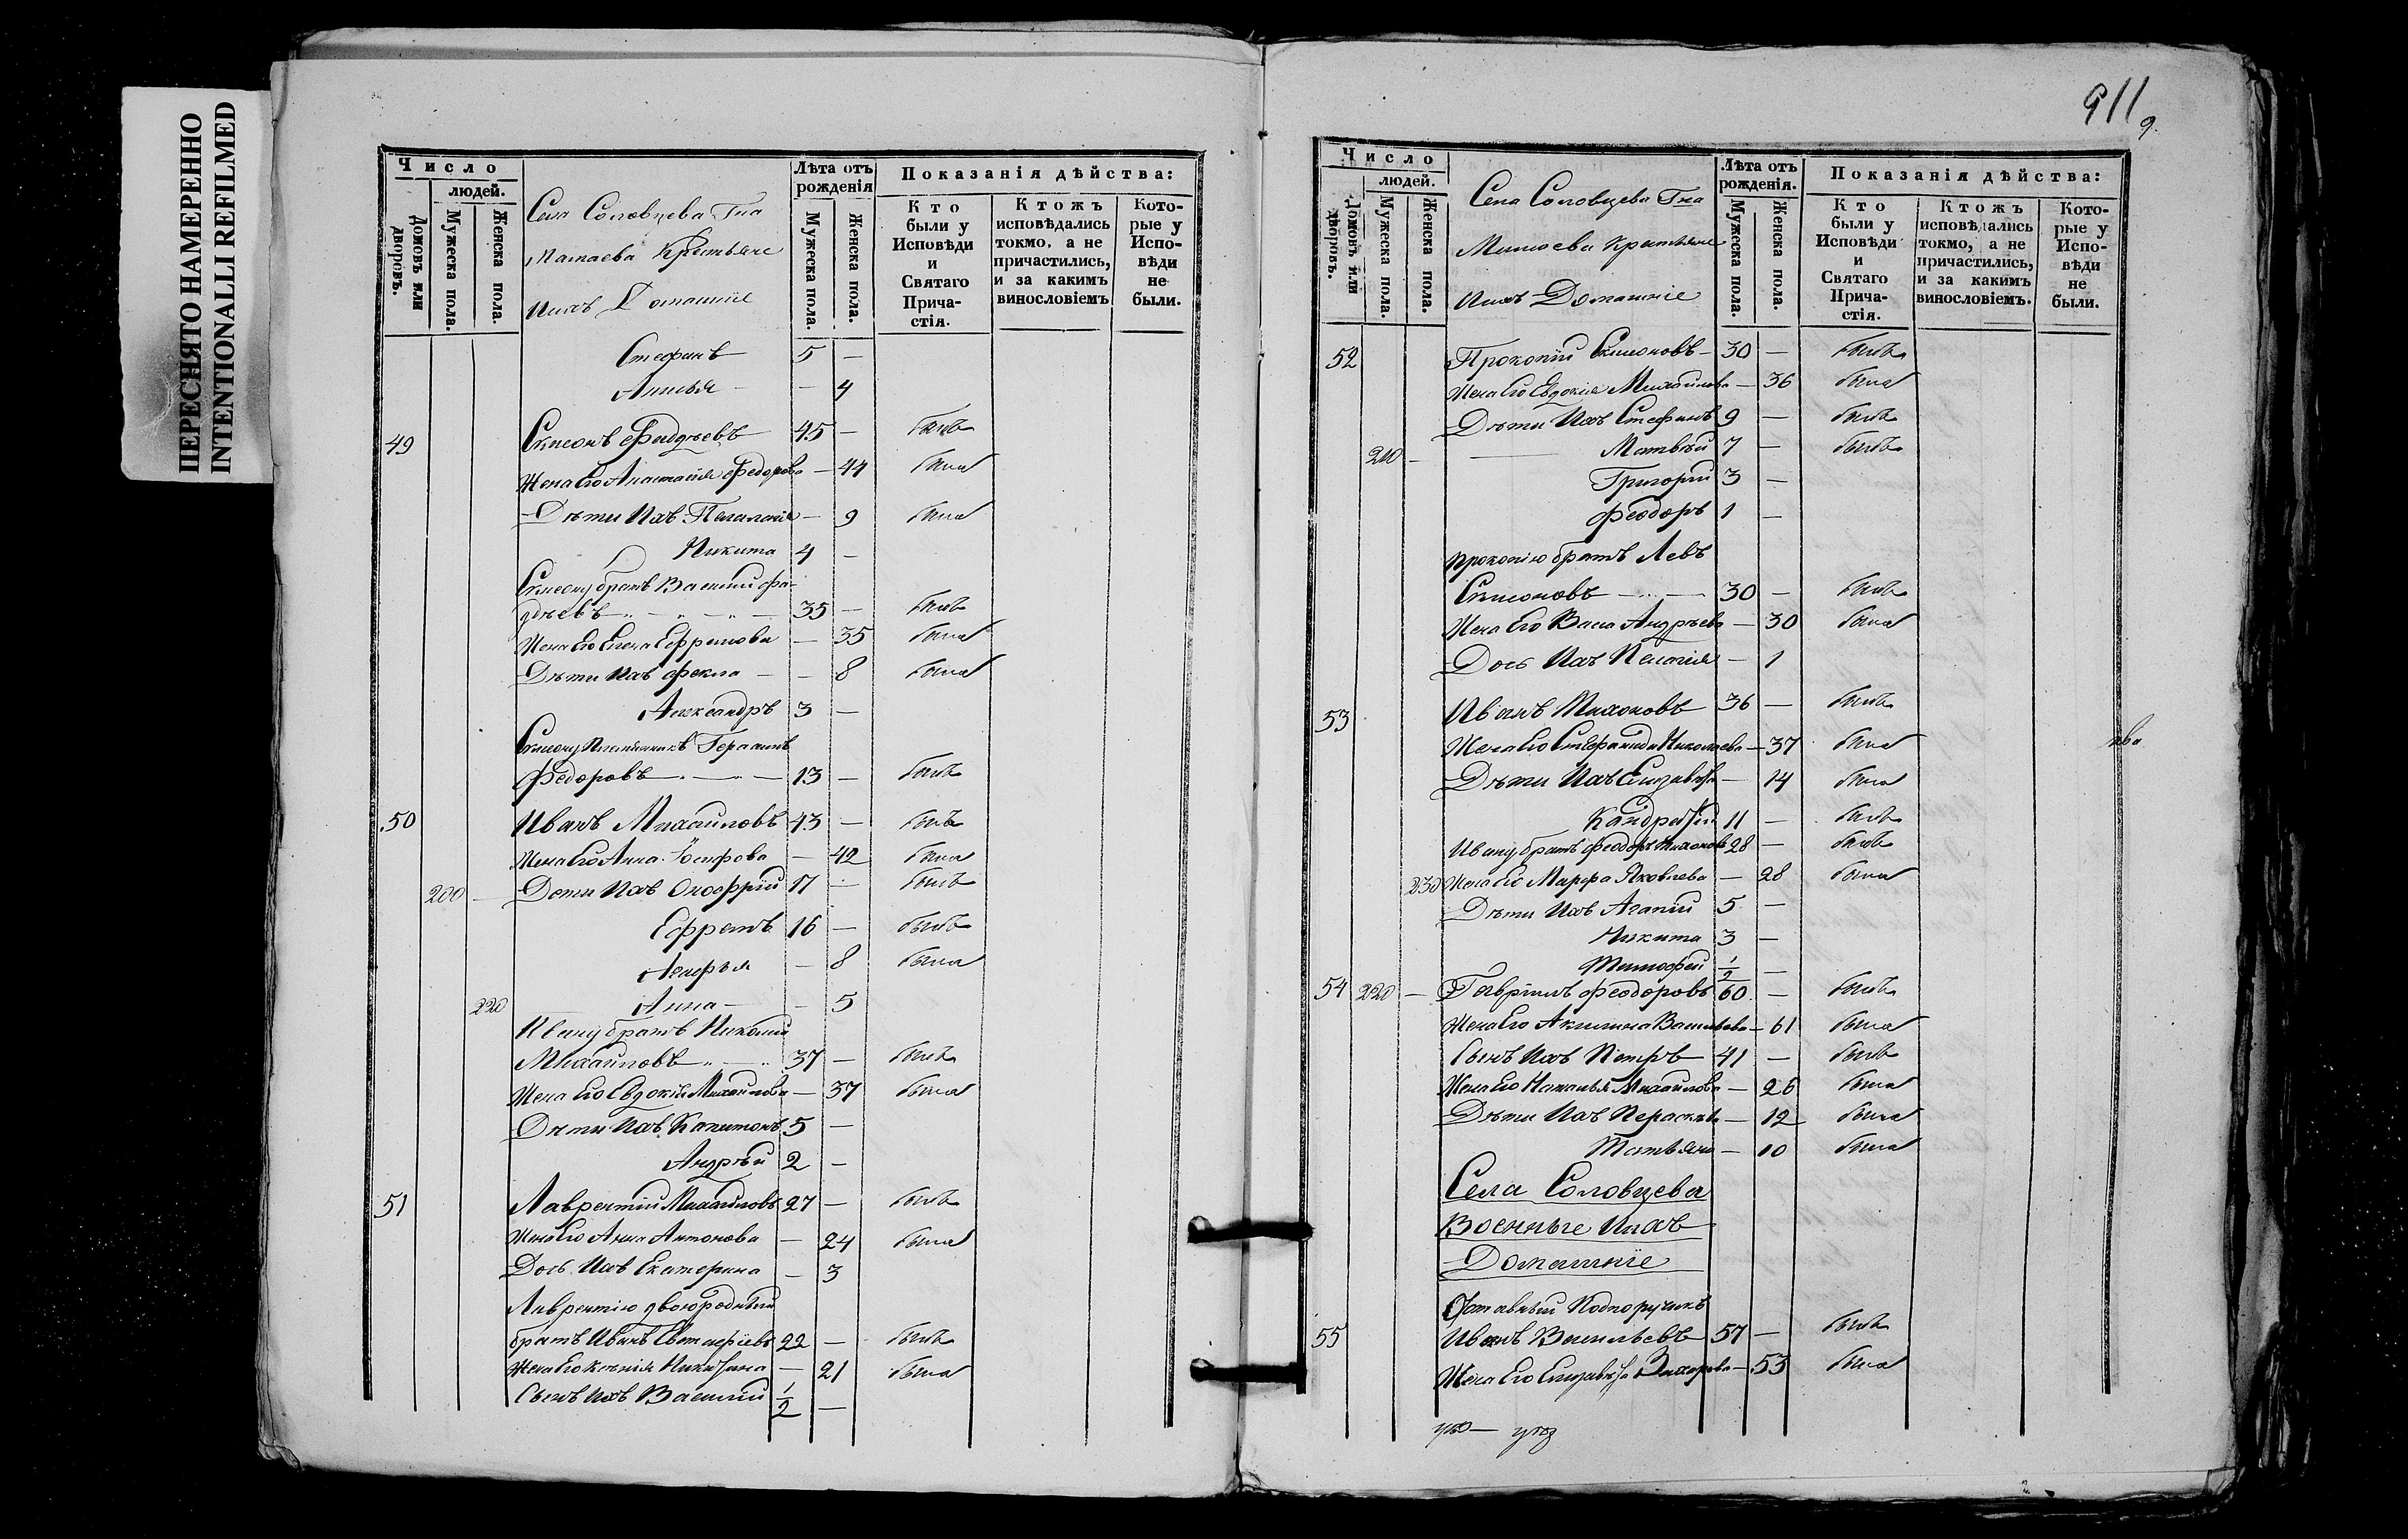 ПЕРЕСНЯТО НАМЕРЕННО
INTENTIONALLI REFILMED
Число
людей.
Домовъ или дворовъ.
Мужеска пола.
Женска пола.
Села Соловцева Гна
Матаева Крестьяне
Ихъ Домашніе
Лѣта отъ рожденія
Мужеска пола.
Женска пола.
Показанія дѣйства:
Кто были у Исповѣди и Святаго Прича-стія.
Ктожъ исповѣдались токмо, а не причастились, и за какимъ винословіемъ
Кото-рые у Испо-вѣди не были.
Стефанъ 5 —
— 4
49 Симеонъ Фадѣевъ 45 — былъ
Жена Его Анастасія Федорова — 44 была
Дѣти Ихъ Пелагія — 9 была
Никита 4 —
Симеону братъ Василій Фа-
дѣевъ 35 — былъ
Жена Его Елена Ефремова — 35 была
Дѣти Ихъ Фекла — 8 была
Александръ 3 —
Симеону Племянникъ Герасимъ
Федоровъ 13 — былъ
50 Иванъ Михайловъ 43 — былъ
Жена Его Анна Іосифова — 42 была
200 — Дѣти Ихъ Онофрій 17 — былъ
Ефремъ 16 — былъ
— 8 была
220 Анна — 5
Ивану братъ Николай
Михайловъ 37 — былъ
Жена Его Евдокія Михайлова — 37 была
Дѣти Ихъ Капитонъ 5 —
Андрѣй 2 —
51 Лаврентій Михайловъ 27 — былъ
Жена Его Анна Антонова — 24 была
Дочь Ихъ Екатерина — 3
Лаврентію двоюродный
братъ Иванъ 22 — былъ
Жена Его Ксенія Никитина — 21 была
Сынъ Ихъ Василій 1/2 —
911
9.
Число
людей.
Домовъ или дворовъ.
Мужеска пола.
Женска пола.
Села Соловцева Гна
Матаева Крестьяне
Ихъ Домашніе
Лѣта отъ рожденія.
Мужеска пола.
Женска пола.
Показанія дѣйства:
Кто были у Исповѣди и Святаго Прича-стія.
Ктожъ исповѣдались токмо, а не причастились, и за какимъ винословіемъ.
Кото-рые у Испо-вѣди не были.
52 Прокопій Симеоновъ — 30 — былъ
Жена Его Евдокія Михайлова — 36 была
Дѣти Ихъ Стефанъ 9 — былъ
210 — Матвѣй 7 — былъ
Григорій 3 —
Феодоръ 1 —
Прокопію братъ Левъ
Симеоновъ 30 — былъ
Жена Его Васса Андрѣева — 30 была
Дочь Ихъ Пелагія — 1
53 Иванъ Тихоновъ 36 — былъ
Жена Его Стефанида Николаева — 37 была
Дѣти Ихъ Елизавета — 14 была
Кандратій 11 — былъ
Ивану братъ Феодоръ Тихоновъ 28 — былъ
230 Жена Его Марфа Яковлева — 28 была
Дѣти Ихъ Агапій 5 —
Никита 3 —
Тимофей 1/2 —
54 220 — Гавріилъ Феодоровъ 60 — былъ
Жена Его Акилина Васильева — 61 была
Сынъ Ихъ Петръ 41 — былъ
Жена Его Наталья Михайлова — 26 была
Дѣти Ихъ — 12 была
Татьяна — 10 была
Села Соловцева
Военные Ихъ
Домашніе
Отставный Подпоручикъ
55 Иванъ Васильевъ 57 — былъ
Жена Его Елизавета Захарова — 53 была